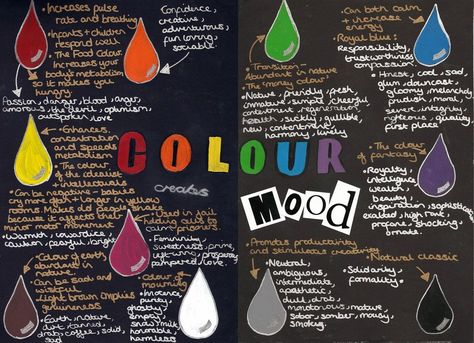 • Increases pulse
rate and breathing
• Infants + children
respond well
• The Food Colour
Increases your
body's metabolism
so it makes you
hungry.
Passion, danger, blood, anger,
amorous, the devil, optimism,
outspoken, love
Confidence,
creative,
adventurous
fun loving,
sociable
• Enhances,
concentration
and speeds
metabolism
• The colour
of the idealist
+ intellectuals
• Can be negative - babies
cry more often + longer in yellow
rooms. Makes old people shake
because it affects their
minor motor movement
• Warmth, cowardice,
caution, pearly, bright
• Used in jail
holding cells to
calm prisoners
• Femininity,
sweetness, prime,
uplifting, prospers,
pampered, love
• Colour of earth
abundant in
nature.
• Can be sad and
wistful
• Light brown implies
genuineness
• Earth, nature,
dirt, tanned,
drab, coffee, solid,
sad
• Colour of
mourning
• Innocence,
purity,
ghostly,
empty,
snow, milk,
honorable,
harmless
COLOUR
creates
Mood
• Transition -
Abundant in nature
• The 'money colour'
• Nature, friendly, fresh
immature, simple, cheerful
contentment, regeneration,
health, sickly, gullible,
new, contentment,
harmony, lively
• Can both calm
+ increase
energy
• Royal blue:
Responsibility,
trustworthiness
compassion.
• Honest, cool, sad
glum, downcast,
gloomy, melancholy
prudish, moral,
severe, integrity,
righteous, quality
first place
• The colour
of fantasy
• Royalty,
intelligence
wealth,
beauty,
inspiration, sophisticated,
exalted, high rank,
profane, shocking
• Promotes productivity
and stimulates creativity
• Neutral,
ambiguous,
intermediate,
apathetic,
dull, drab,
monotonous, mature,
sober, somber, mousy,
smokey
• Natural classic
• Solidarity,
formality